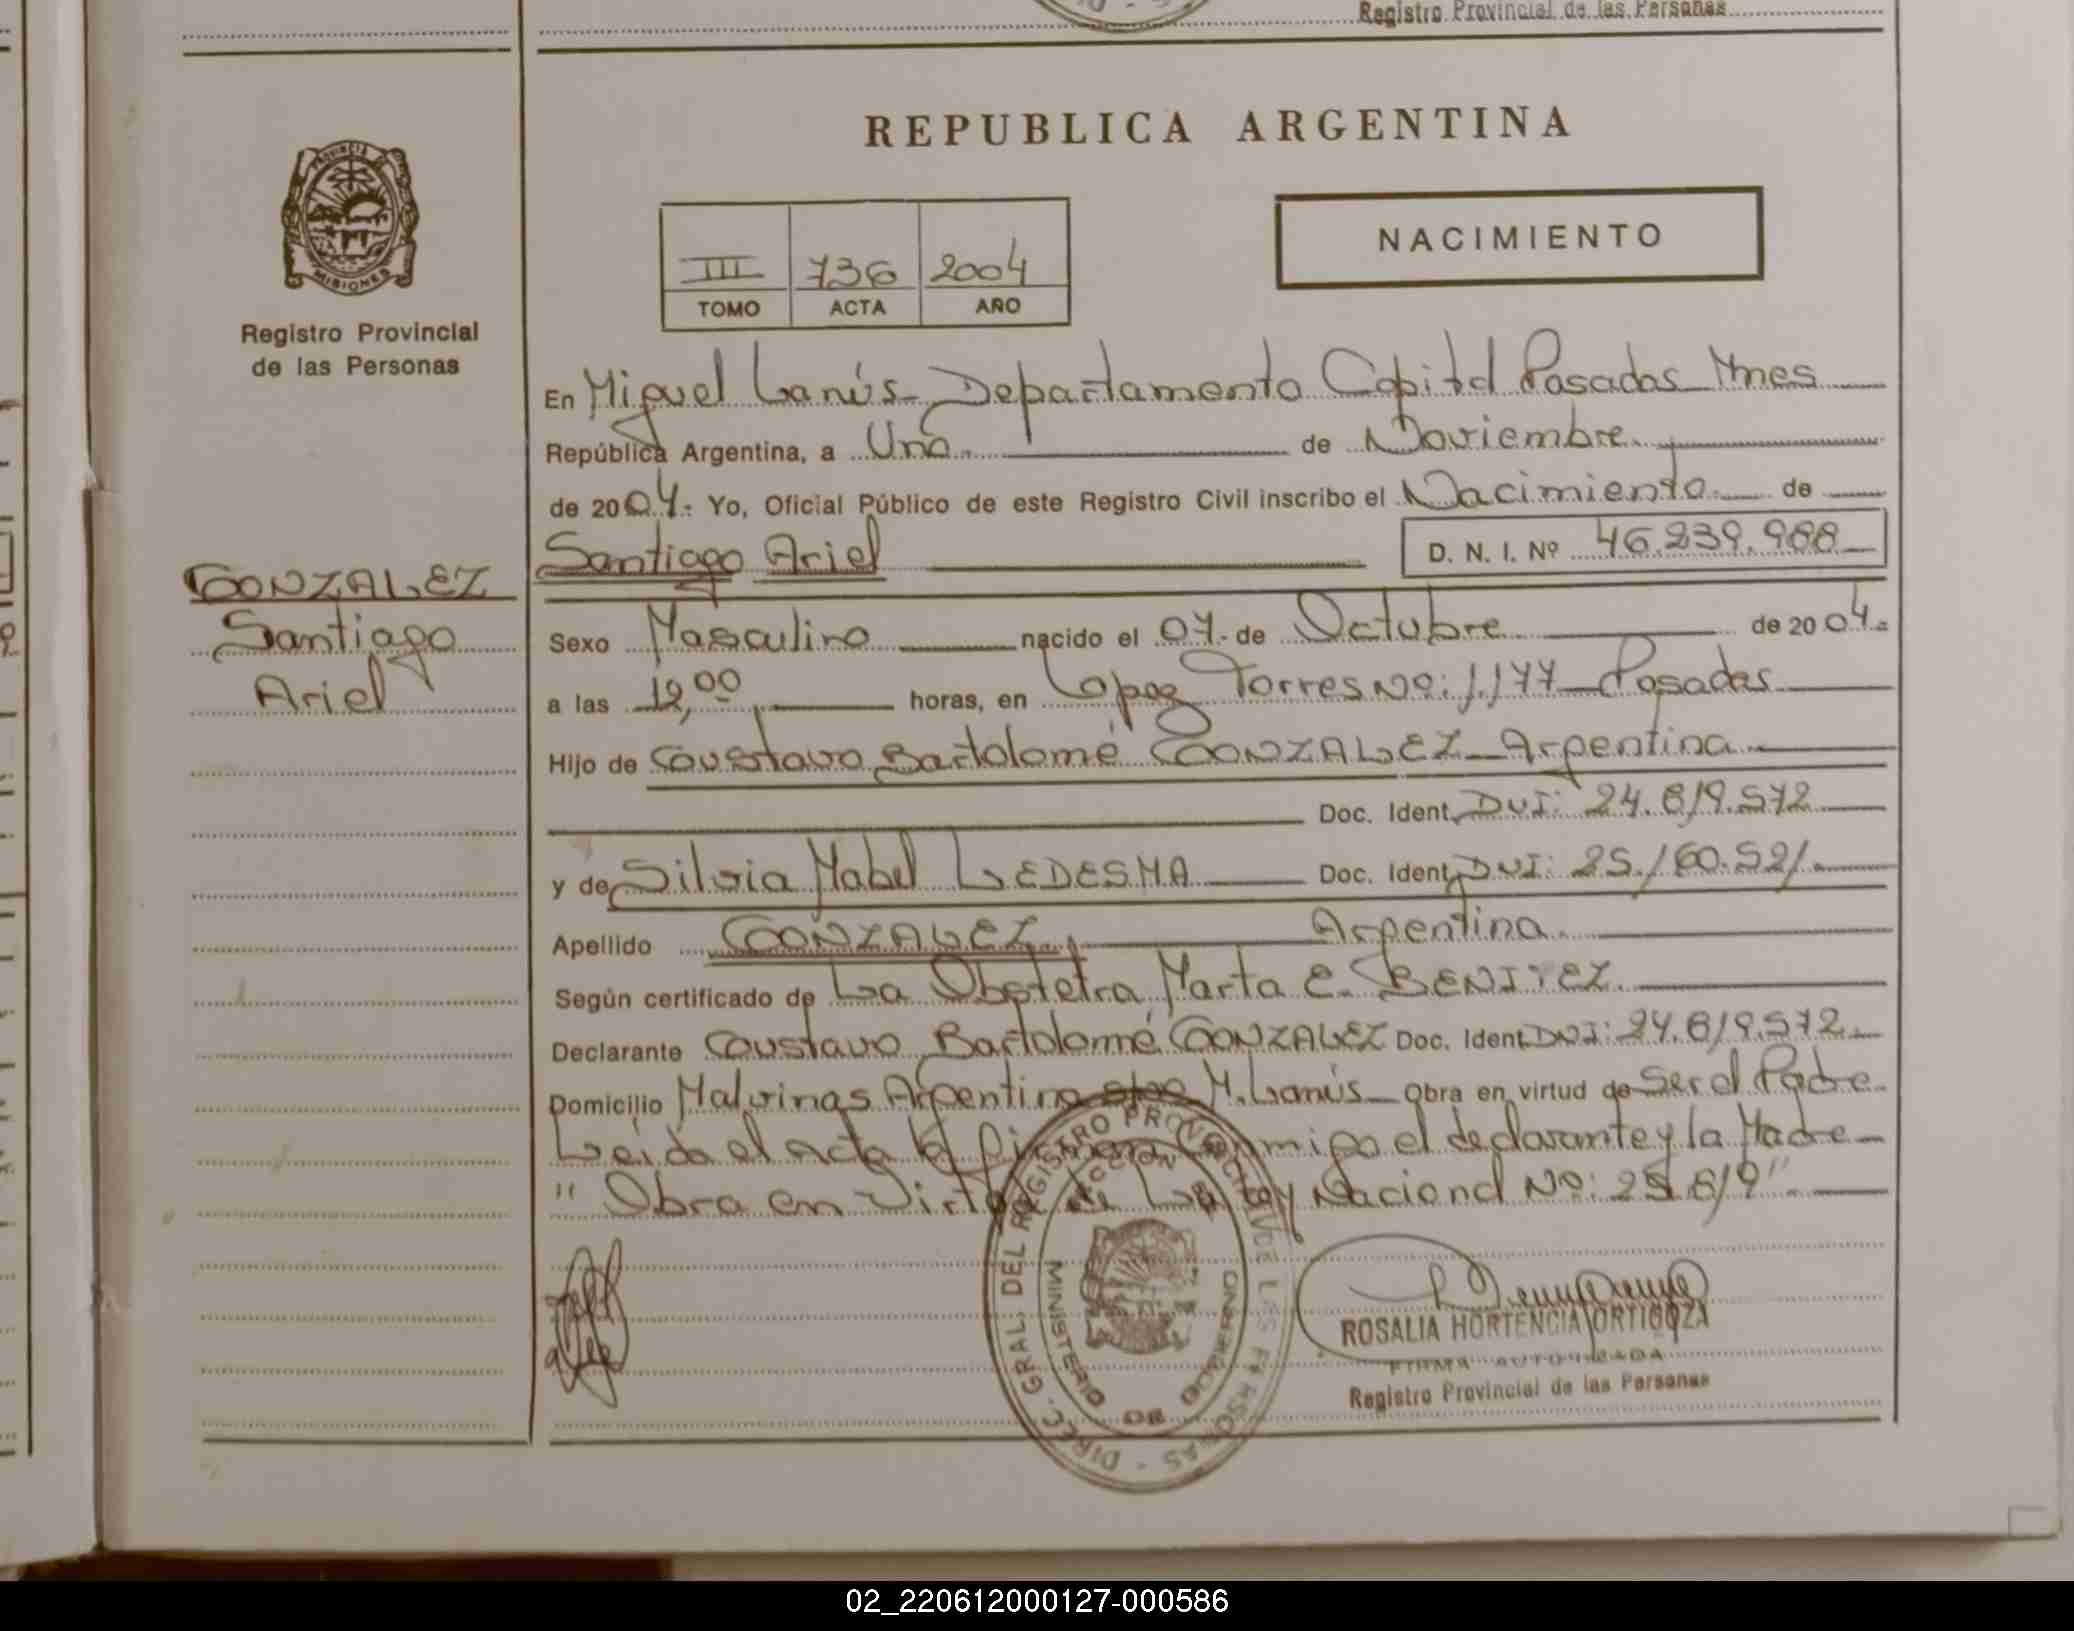 Registro Provincial de las Personas
REPUBLICA ARGENTINA
PROVINCIA DE
MISIONES
Registro Provincial
de las Personas
NACIMIENTO
III 736 2004
TOMO ACTA AÑO
En Miguel Lanús - Departamento Capital Posadas Mnes
República Argentina, a Uno de Noviembre
de 2004. Yo, Oficial Público de este Registro Civil inscribo el Nacimiento de
Santiago Ariel D. N. I. Nº 46.239.988
GONZALEZ
Santiago
Ariel
Sexo Masculino nacido el 07 de Octubre de 2004.
a las 12,00 horas, en Lopez Torres Nº: 1.177 - Posadas
Hijo de Gustavo Bartolomé GONZALEZ - Argentina
Doc. Ident. DNI: 24.619.572
y de Silvia Mabel LEDESMA Doc. Ident. DNI: 25.160.521.
Apellido GONZALEZ Argentina
Según certificado de La Obstetra Marta E. BENITEZ
Declarante Gustavo Bartolomé GONZALEZ Doc. Ident. DNI: 24.619.572.
Domicilio Malvinas Argentina M. Lanús - Obra en virtud de Ser el Padre
Leída el acta la firman conmigo el declarante y la Madre
" Obra en Virtud de La Ley Nacional Nº: 25.819"
DIREC. GRAL. DEL REGISTRO PROVINCIAL DE LAS PERSONAS
MINISTERIO DE GOBIERNO
ROSALIA HORTENCIA ORTIGOZA
FIRMA AUTORIZADA
Registro Provincial de las Personas
02_220612000127-000586